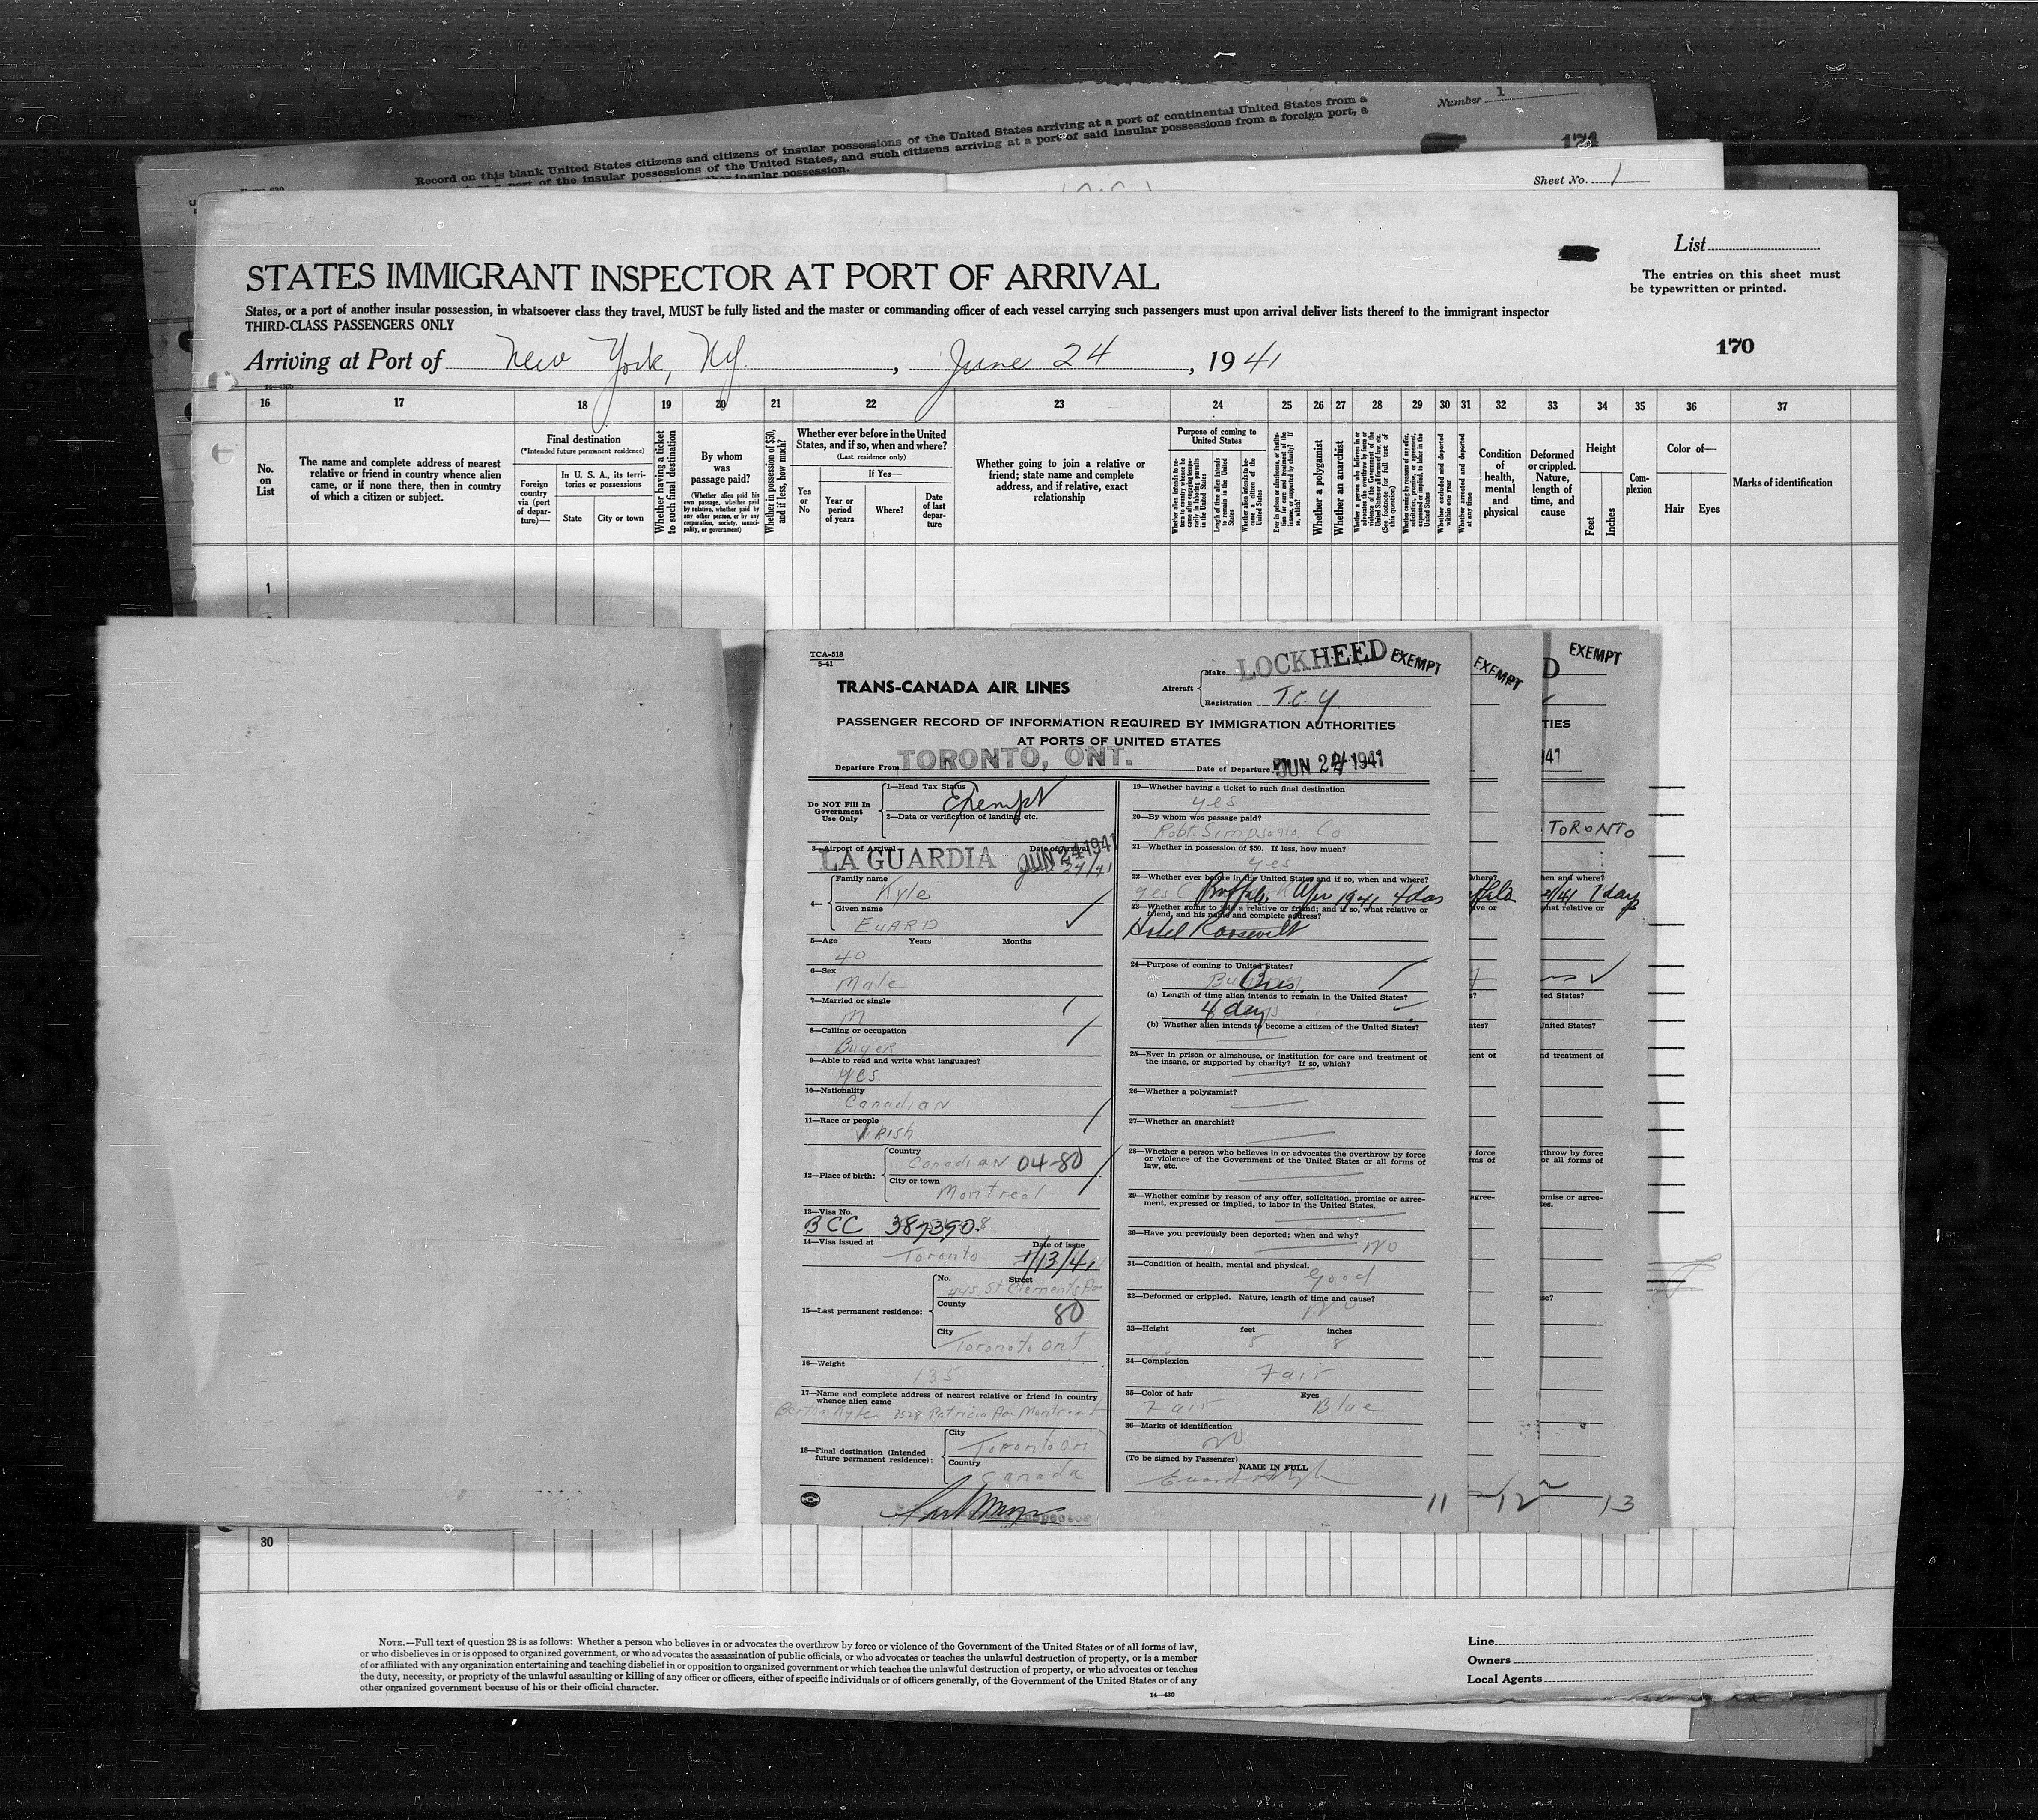 Number 1
Record on this blank United States citizens and citizens of insular possessions of the United States arriving at a port of continental United States from a
port of the insular possessions of the United States, and such citizens arriving at a port of said insular possessions from a foreign port, a
insular possession.
171
Sheet No. 1
List
The entries on this sheet must
be typewritten or printed.
STATES IMMIGRANT INSPECTOR AT PORT OF ARRIVAL
States, or a port of another insular possession, in whatsoever class they travel, MUST be fully listed and the master or commanding officer of each vessel carrying such passengers must upon arrival deliver lists thereof to the immigrant inspector
THIRD-CLASS PASSENGERS ONLY
170
Arriving at Port of New York, NY. , June 24 , 1941
16 17 18 19 20 21 22 23 24 25 26 27 28 29 30 31 32 33 34 35 36 37
No. on List
The name and complete address of nearest relative or friend in country whence alien came, or if none there, then in country of which a citizen or subject.
Final destination
(*Intended future permanent residence)
Foreign country via (port of departure)—
In U. S. A., its territories or possessions
State
City or town
Whether having a ticket to such final destination
By whom was passage paid?
(Whether alien paid his own passage, whether paid by relative, whether paid by any other person, or by any corporation, society, municipality, or government)
Whether in possession of $50, and if less, how much?
Whether ever before in the United States, and if so, when and where?
(Last residence only)
Yes or No
If Yes—
Year or period of years
Where?
Date of last departure
Whether going to join a relative or friend; state name and complete address, and if relative, exact relationship
Purpose of coming to United States
Length of time alien intends to remain in the United States
Whether alien intends to become a citizen of the United States
Whether a polygamist
Whether an anarchist
Whether excluded and deported within one year
Whether arrested and deported at any time
Condition of health, mental and physical
Deformed or crippled. Nature, length of time, and cause
Height
Feet
Inches
Complexion
Color of—
Hair
Eyes
Marks of identification
1
TCA-518
5-41
TRANS-CANADA AIR LINES
Aircraft
Make LOCKHEED
EXEMPT
Registration T.C.Y
EXEMPT
EXEMPT
PASSENGER RECORD OF INFORMATION REQUIRED BY IMMIGRATION AUTHORITIES
AT PORTS OF UNITED STATES
Departure From TORONTO, ONT.
Date of Departure JUN 24 1941
Do NOT Fill In Government Use Only
1—Head Tax Status Exempt
2—Data or verification of landing, etc.
3—Airport of Arrival LA GUARDIA
Date of Arrival JUN 24 1941
4—
Family name Kyle
Given name EUARD
5—Age Years Months
40
6—Sex
Male
7—Married or single
M
8—Calling or occupation
Buyer
9—Able to read and write what languages?
yes.
10—Nationality
Canadian
11—Race or people
IRISH
12—Place of birth:
Country Canadian 04-80
City or town Montreal
13—Visa No.
BCC 387390.
14—Visa issued at Toronto
Date of issue 1/13/41
15—Last permanent residence:
No. Street
445 St Clements Ave
County 80
City
Toronto Ont
16—Weight
135
17—Name and complete address of nearest relative or friend in country
whence alien came
Bertha Kyle 3528 Patricia Av Montreal
18—Final destination (Intended
future permanent residence):
City
Toronto Ont
Country
Canada
Inspector
19—Whether having a ticket to such final destination
yes
20—By whom was passage paid?
Robt. Simpsons Co
21—Whether in possession of $50. If less, how much?
yes
22—Whether ever before in the United States and if so, when and where?
yes Buffalo Apr 1941 4 das
23—Whether going to join a relative or friend; and if so, what relative or
friend, and his name and complete address?
Hotel Roosevelt
24—Purpose of coming to United States?
Bus.
(a) Length of time alien intends to remain in the United States?
4 days
(b) Whether alien intends to become a citizen of the United States?
25—Ever in prison or almshouse, or institution for care and treatment of
the insane, or supported by charity? If so, which?
26—Whether a polygamist?
27—Whether an anarchist?
28—Whether a person who believes in or advocates the overthrow by force
or violence of the Government of the United States or all forms of
law, etc.
29—Whether coming by reason of any offer, solicitation, promise or agree-
ment, expressed or implied, to labor in the United States.
30—Have you previously been deported; when and why?
No
31—Condition of health, mental and physical.
Good
32—Deformed or crippled. Nature, length of time and cause?
No
33—Height feet inches
5 8
34—Complexion
Fair
35—Color of hair Eyes
Fair Blue
36—Marks of identification
No
(To be signed by Passenger)
NAME IN FULL
11
12
13
TORONTO
30
NOTE.—Full text of question 28 is as follows: Whether a person who believes in or advocates the overthrow by force or violence of the Government of the United States or of all forms of law,
or who disbelieves in or is opposed to organized government, or who advocates the assassination of public officials, or who advocates or teaches the unlawful destruction of property, or is a member
of or affiliated with any organization entertaining and teaching disbelief in or opposition to organized government or which teaches the unlawful destruction of property, or who advocates or teaches
the duty, necessity, or propriety of the unlawful assaulting or killing of any officer or officers, either of specific individuals or of officers generally, of the Government of the United States or of any
other organized government because of his or their official character.
14—430
Line
Owners
Local Agents